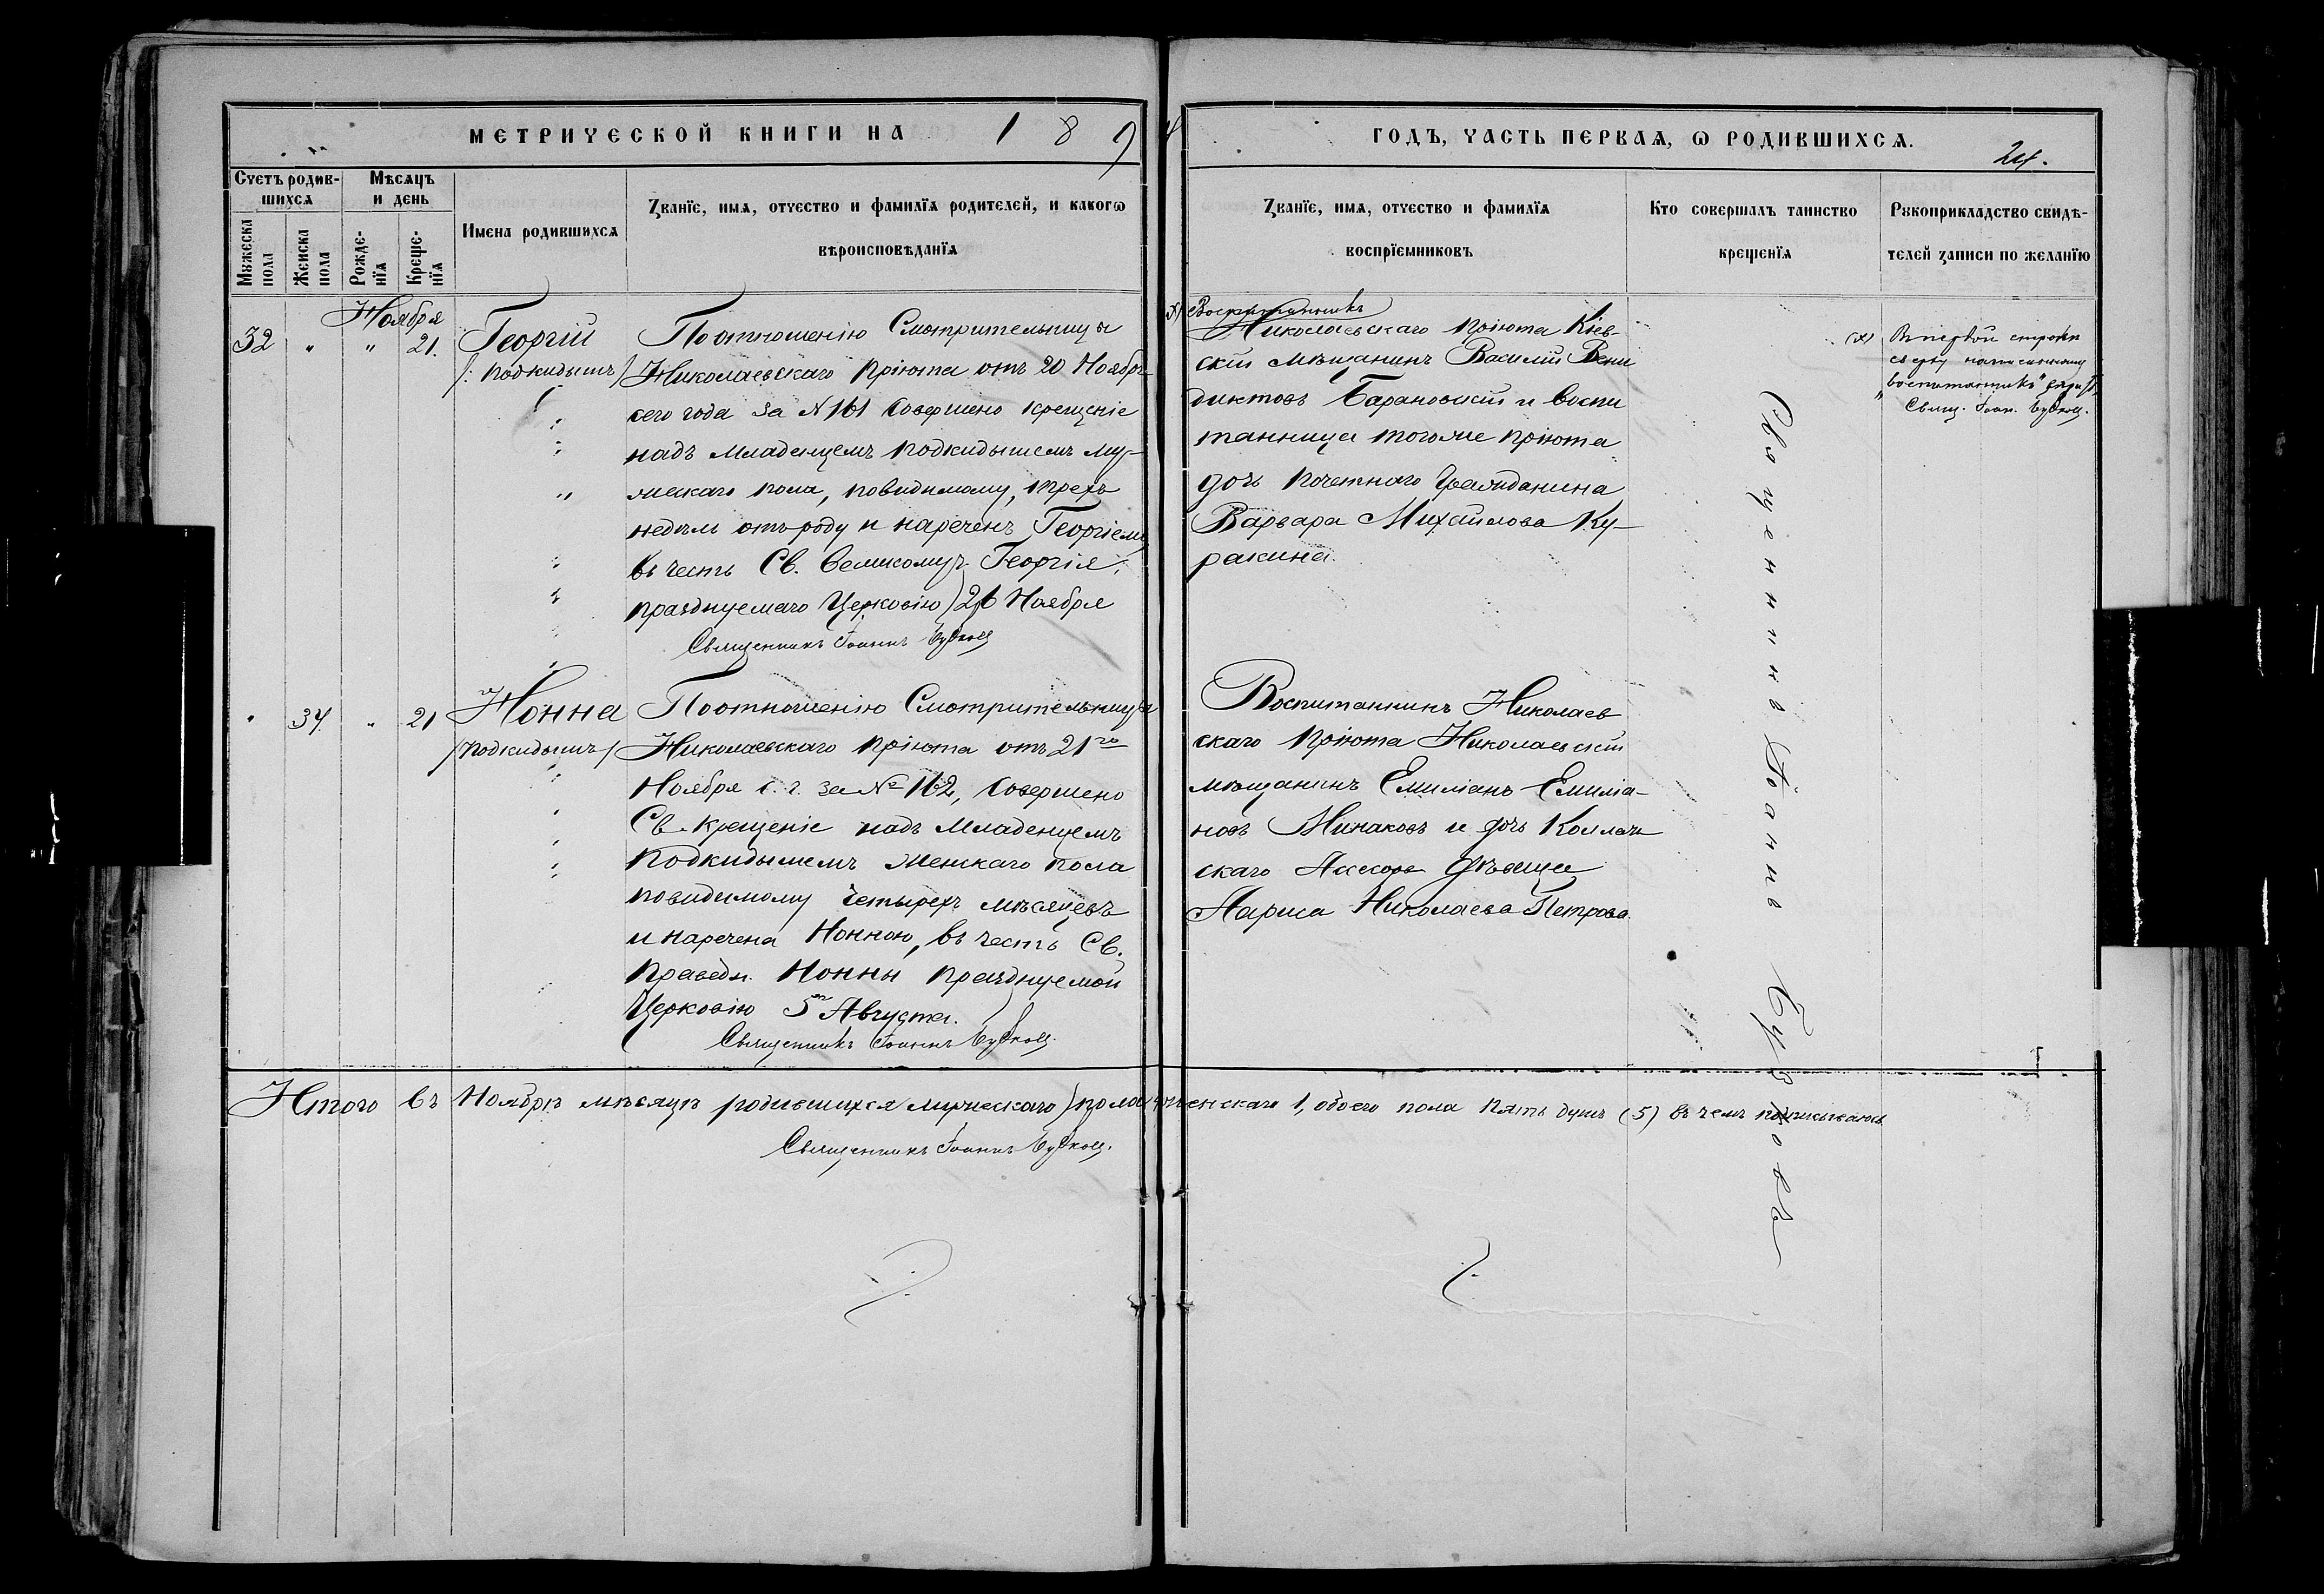 МЕТРИЧЕСКОЙ КНИГИ НА 1894 ГОДЪ, ЧАСТЬ ПЕРВАѦ, Ѡ РОДИВШИХСѦ.
24.
Счетъ родив-
шихсѧ
Мѣсѧцъ
и день
Мꙋжеска
пола
Женска
пола
Рожде-
нїѧ
Креще-
нїѧ
Имена родившихсѧ
Званїе, имѧ, отчество и фамилїѧ родителей, и какогѡ
вѣроисповѣданїѧ
Званїе, имѧ, отчество и фамилїѧ
воспрїемниковъ
Кто совершалъ таинство
крещенїѧ
Рꙋкоприкладство свидѣ-
телей записи по желанїю
Ноября
32 " " 21.
Георгій
/: подкидышъ /
По отношенію Смотрительницы
Николаевскаго пріюта отъ 20 Ноябр
сего года за N 161 совершено крещеніе
надъ младенцемъ подкидышемъ му-
жескаго пола, повидимому, трехъ
недѣль отъ роду и нареченъ Георгіемъ
въ честь Св. Великомуч. Георгія,
празднуемаго Церковію 26 Ноября
Священникъ Іоаннъ
х) Воспитанникъ
Николаевскаго пріюта Кіев-
скій мѣщанинъ Василій Вени
диктовъ Барановскій и воспи
танница тогоже пріюта
дочь почетнаго Гражданина
Варвара Михайлова Ку-
ракина.
Священникъ Іоаннъ
(х) В первой строкѣ
сверху написанному
"воспитанникъ"
Свящ. Іоан.
" 34. " 21
Нонна
/подкидышъ/
По отношенію Смотрительницы
Николаевскаго пріюта отъ 21го
Ноября с. г. за № 162, совершено
Св. крещеніе надъ младенцемъ
подкидышемъ женскаго пола
повидимому четырехъ мѣсяцевъ
и наречена Нонною, въ честь Св.
праведн. Нонны празднуемой
Церковію 5го Августа.
Священникъ Іоаннъ
Воспитанникъ Николаев
скаго пріюта Николаевскій
мѣщанинъ Емиліанъ Емилiа-
новъ Минаковъ и дочь Коллеж
скаго Ассесора дѣвица
Лариса Николаева Петрова.
Итого въ Ноябрѣ мѣсяцѣ родившихся мужескаго пола 4 женскаго 1, обоего пола пять душъ (5) въ чемъ подписываюсь
Священникъ Іоаннъ